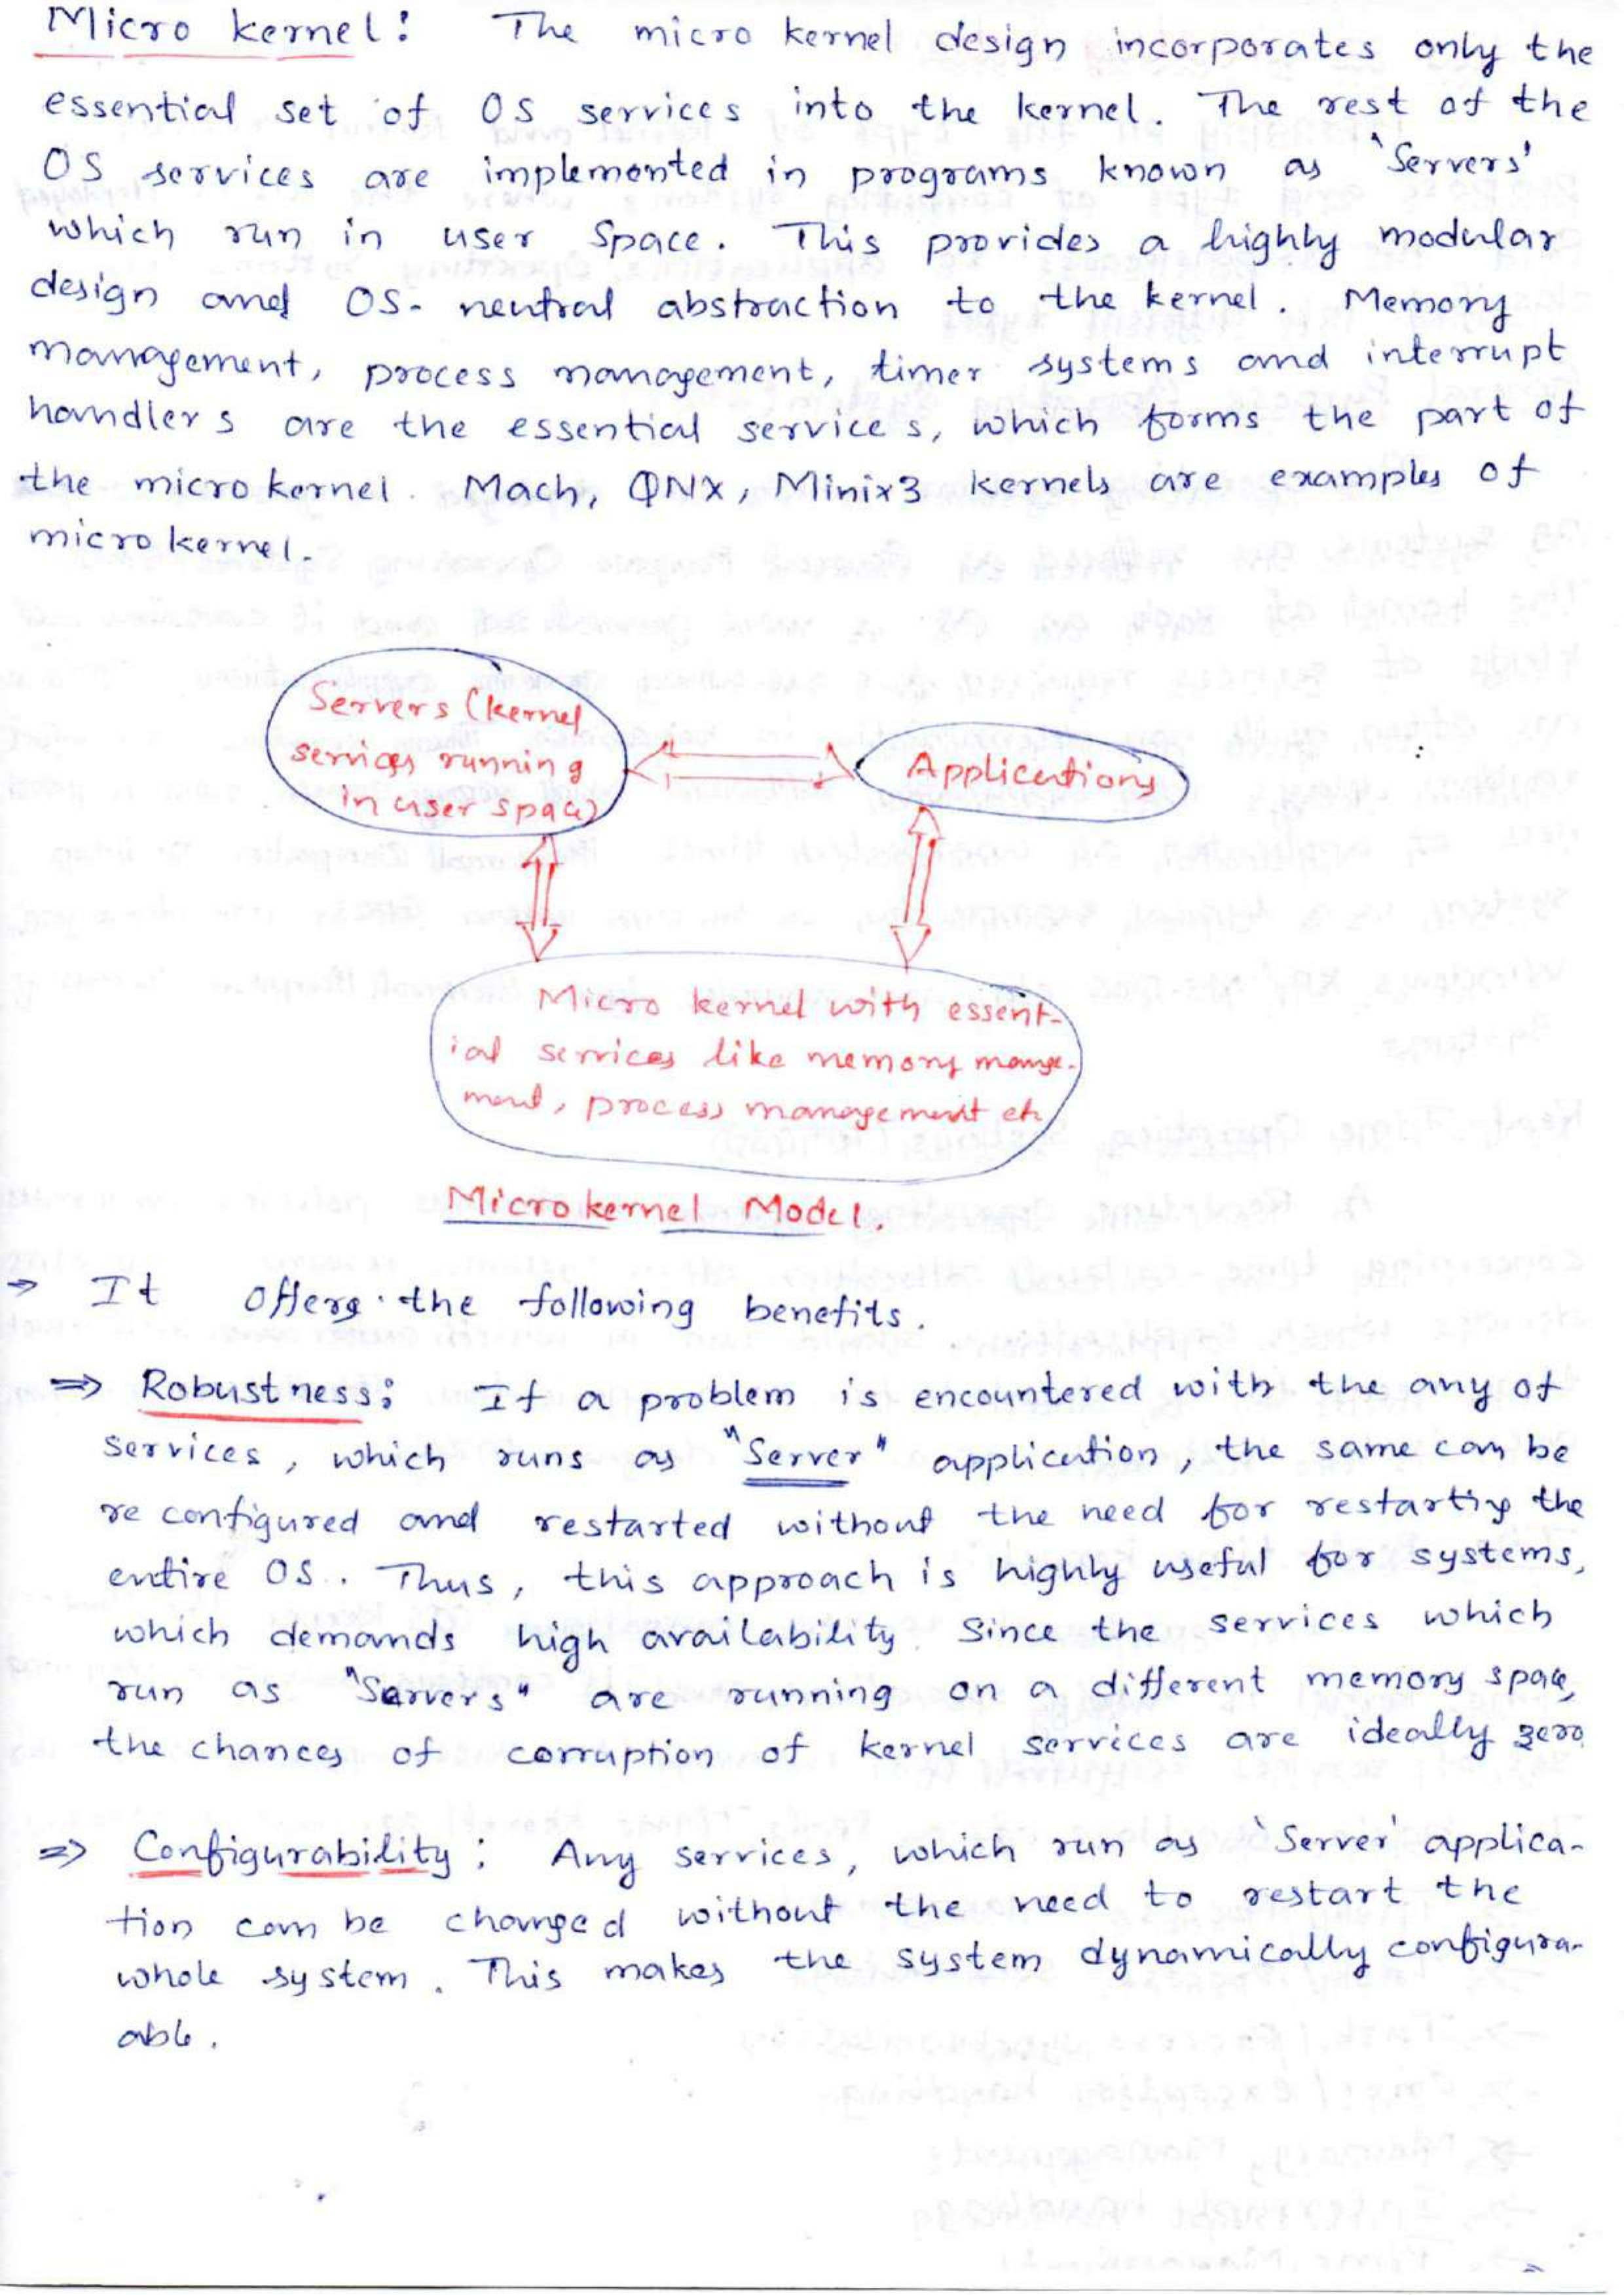 Micro kernel: The micro kernel design incorporates only the
essential set of OS services into the kernel. The rest of the
OS services are implemented in programs known as 'Servers'
which run in user space. This provides a highly modular
design and OS-neutral abstraction to the kernel. Memory
management, process management, timer systems and interrupt
handlers are the essential services, which forms the part of
the microkernel. Mach, QNX, Minix3 kernels are examples of
micro kernel.
Servers (kernel
services running
in user space)
Applications
Micro kernel with essent-
ial services like memory mange-
ment, process management etc
Microkernel Model.
⇒ It offers the following benefits.
⇒ Robustness: If a problem is encountered with the any of
services, which runs as "Server" application, the same can be
re configured and restarted without the need for restarting the
entire OS. Thus, this approach is highly useful for systems,
which demands high availability. Since the services which
run as "Servers" are running on a different memory space,
the chances of corruption of kernel services are ideally zero.
⇒ Configurability: Any services, which run as 'Server' applica-
tion can be changed without the need to restart the
whole system. This makes the system dynamically configura-
able.